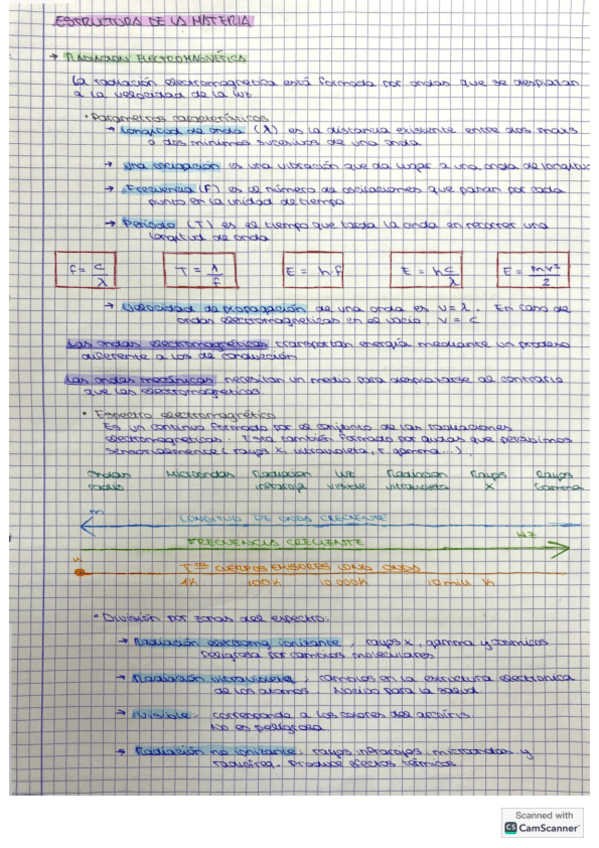 ESTRUCTURA DE LA MATERIA
→ RADIACION ELECTROMAGNÉTICA
La radiación electromagnetica está formada por ondas que se desplazan
a la velocidad de la luz
• Parametros característicos
→ Longitud de onda (λ) es la distancia existente entre dos maxs
o dos minimos sucesivos de una onda
→ Una oscilación es una vibración que da lugar a una onda de longitud
→ Frecuencia (F) es el número de oscilaciones que pasan por cada
punto en la unidad de tiempo
→ Periodo (T) es el tiempo que tarda la onda en recorrer una
longitud de onda
f = c/λ T = λ/f E = h·f E = h c/λ E = mv²/2
→ Velocidad de propagación de una onda es v = λ. En caso de
ondas electromagneticas en el vacio, v = c
Las ondas electromagnéticas transportan energía mediante un proceso
diferente a los de conducción
Las ondas mecánicas necesitan un medio para desplazarse al contrario
que las electromagneticas
• Espectro electromagnético
Es un continuo formado por el conjunto de las radiaciones
electromagneticas. Esta también formado por que percibimos
sensorialmente (rayos X, ultravioleta, r. gamma...).
Ondas Microondas Radiacion luz Radiacion Rayos Rayos
radio infraroja visible ultravioleta X Gamma
m
LONGITUD DE ONDA CRECIENTE
HZ
FRECUENCIA CRECIENTE
K
Tas CUERPOS EMISORES LONG ONDA
1K 100K 10 000K 10 mill K
• División por zonas del espectro:
→ Radiación electromg ionitante, rayos x, gamma y
Peligrosa por cambios moleculares
→ Radiación ultravioleta, cambios en la estructura electronica
de los atomos. Nocivo para la salud
→ Visible, corresponde a los colores del arcoiris
No es peligrosa
→ Radiación no ionizante, rayos infrarojos, microondas y
Produce efectos térmicos
Scanned with
CS CamScanner